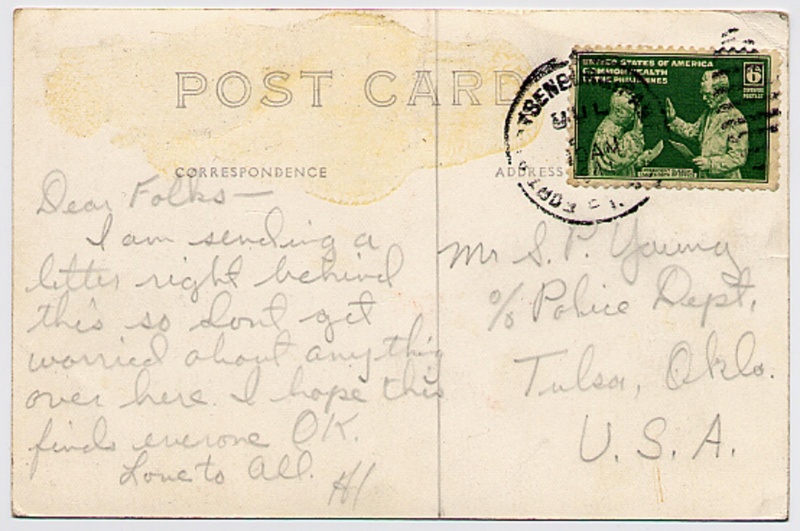 POST CARD
CORRESPONDENCE
ADDRESS
UNITED STATES OF AMERICA
COMMONWEALTH
OF THE PHILIPPINES
6
JUL
AM
FORT
Dear Folks—
I am sending a
letter right behind
this so dont get
worried about anything
over here. I hope this
finds everone OK.
Love to All.
Mr S. P. Young
% Police Dept,
Tulsa, Okla.
U. S. A.